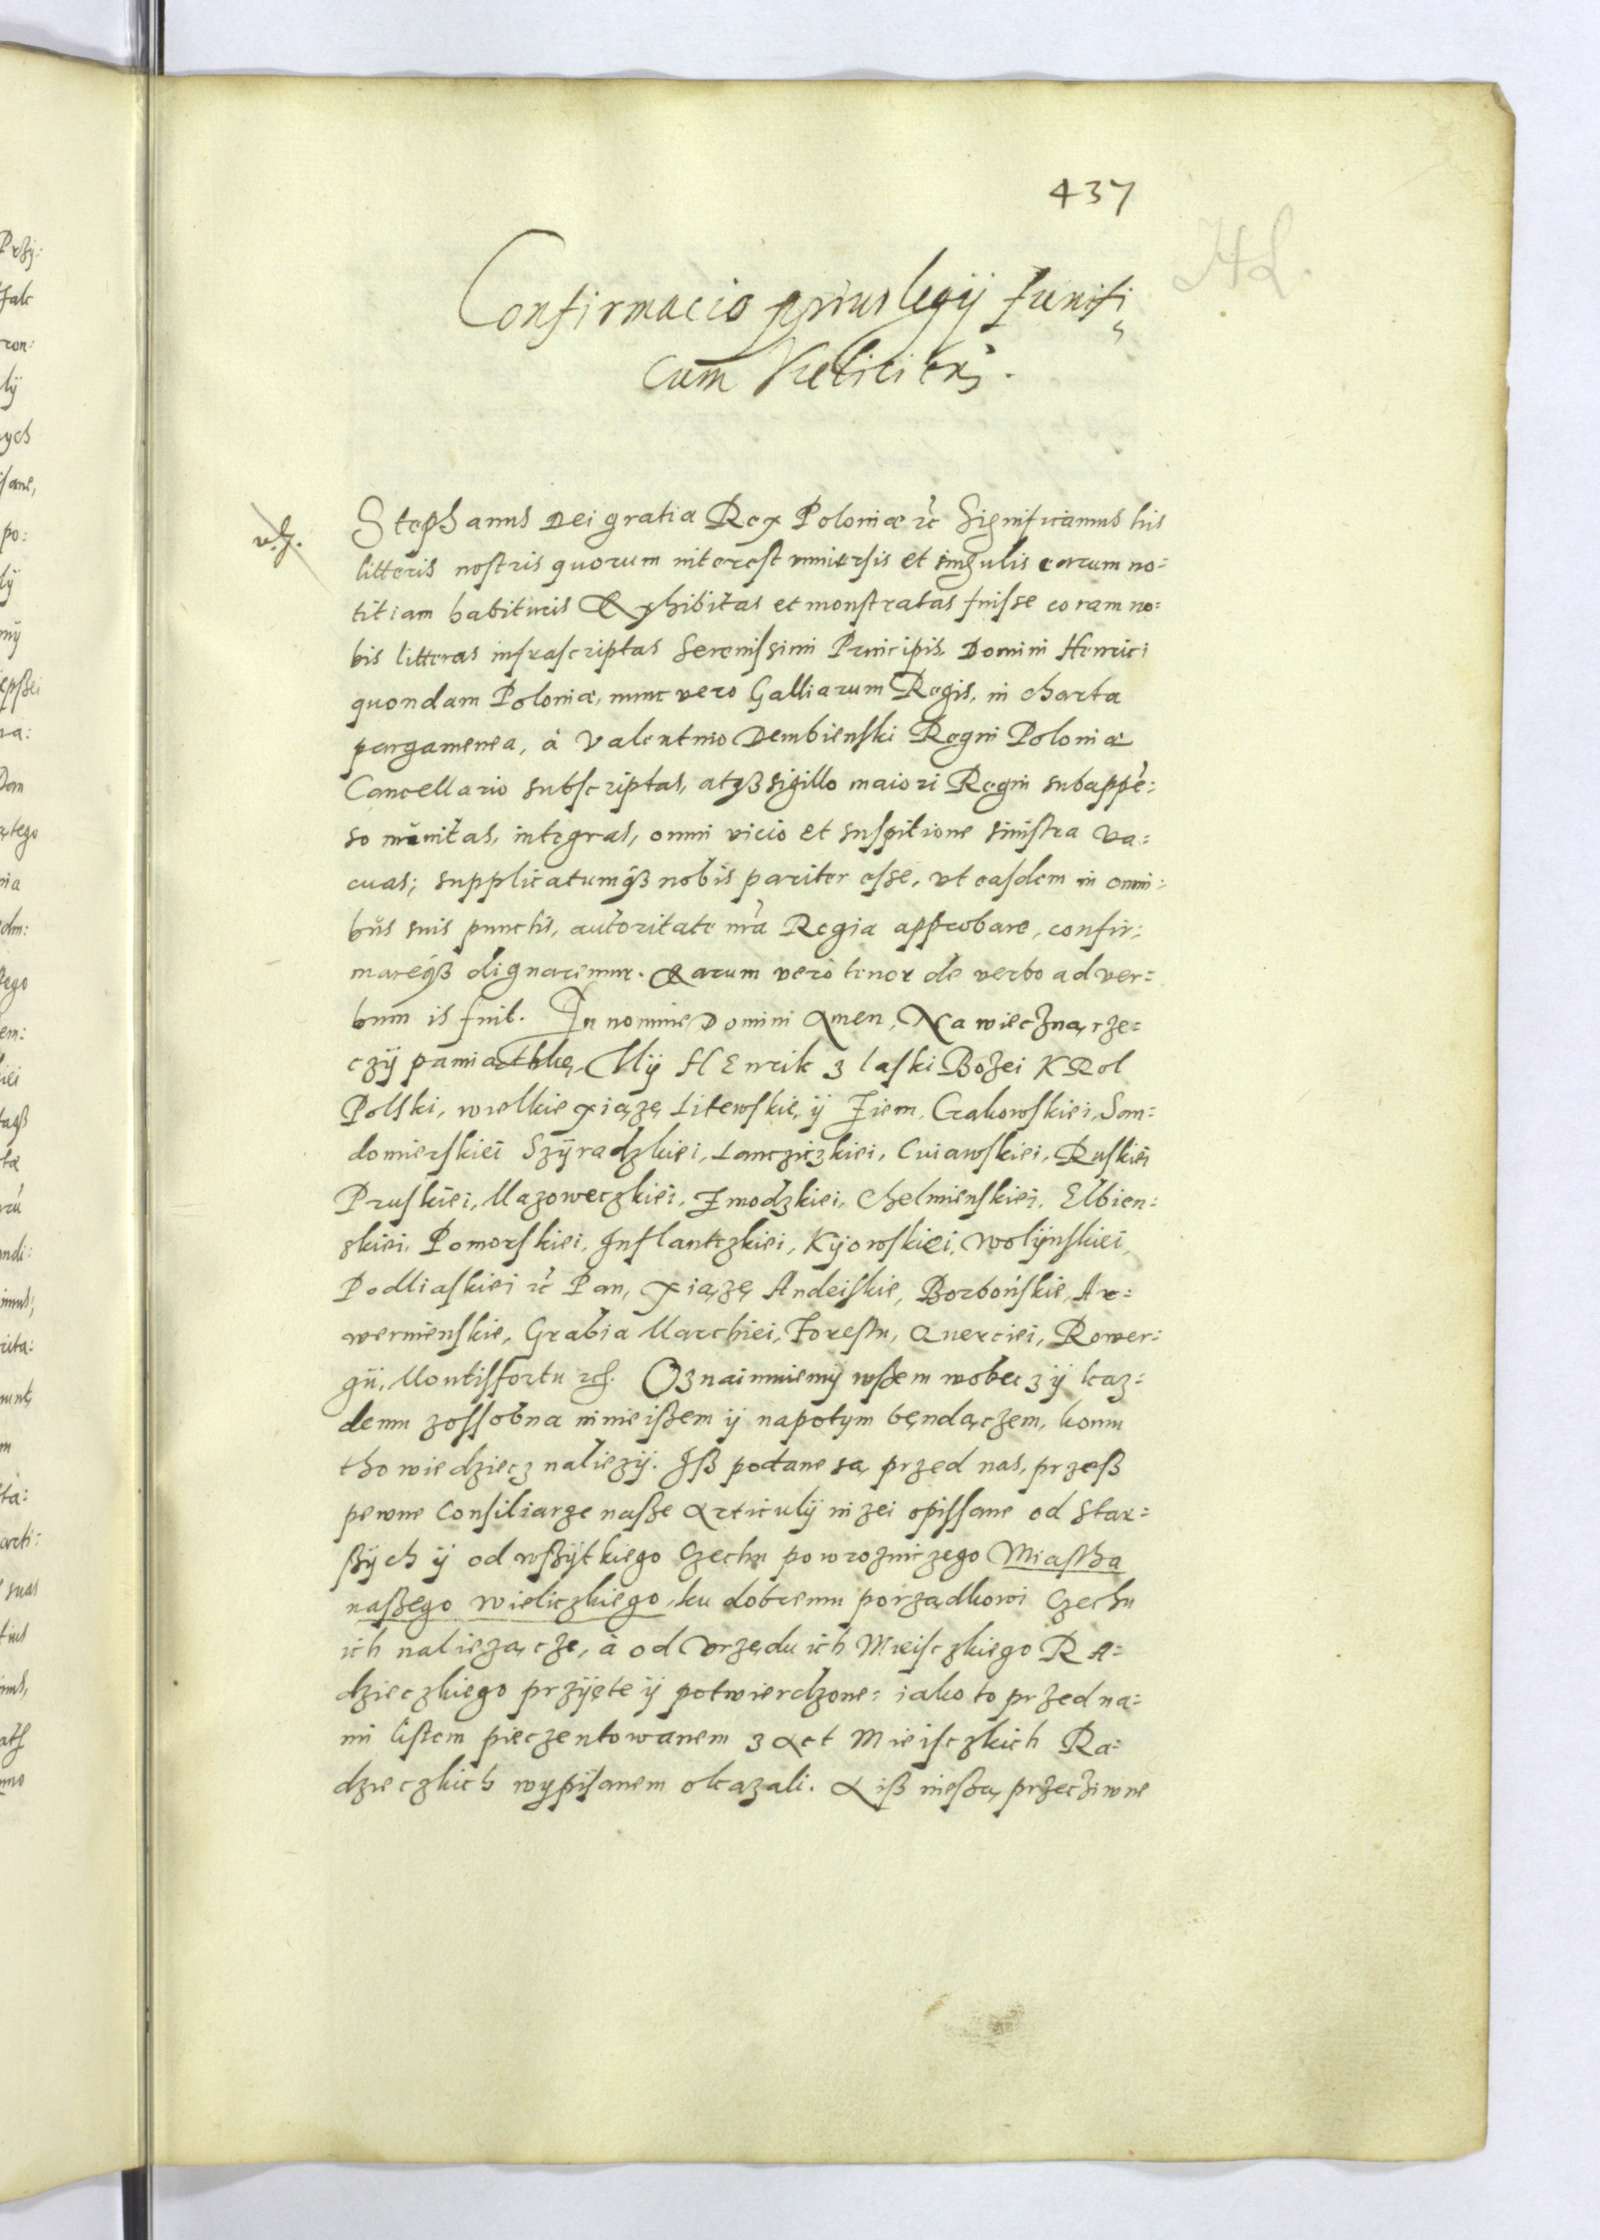 437
HL.
Confirmacio privilegij funifi
cum Vieliciens.
Stephanus Dei gratia Rex Poloniæ etc̃ Significamus his
litteris nostris quorum interest vniuersis et singulis earum no=
titiam habituris Exhibitas et monstratas fuisse coram no=
bis litteras infrascriptas Serenissimi Principis Domini Henrici
quondam Poloniæ, nunc vero Galliarum Regis, in charta
pargamenea, à Valentino Dembienski Regni Poloniæ
Cancellario subscriptas, atqȝ sigillo maiori Regni subappẽ=
so munitas, integras, omni vicio et suspitione sinistra va=
cuas; supplicatumqȝ nobis pariter esse, vt easdem in omni=
bus suis punctis, autoritate nr̃a Regia approbare, confir=
mareqȝ dignaremur. Earum vero tenor de verbo ad ver=
bum is fuit. In nomine Domini Amen, Na wieczną rze=
czÿ pamiathkę, Mÿ HEnrik z laski Bożei KRol
Polski, wielkie xiążę Litewskie, ÿ Ziem, Crakowskiei, San=
domierskiei Szÿradzkiei, Lancziczkiei, Cuiawskiei, Ruskiei
Pruskiei, Mazoweczkiei, Zmodzkiei, Chelmienskiei, Elbien=
skiei, Pomorskiei, Inflantczkiei, Kÿowskiei, Wolÿnskiei,
Podliaskiei etc̃ Pan, xiążę Andeiskie, Borbońskie, Ar=
wernienskie, Grabia Marchiei, Forestu, Querciei, Rower=
gii, Montisfortu etc. Oznaimuiemÿ wßem wobecz ÿ kaz=
demu zossobna ninieißem ÿ napotym będączem, komu
tho wiedziecz należÿ. Iß podane są przed nas, przeß
pewne Consiliarze naße Articulÿ niżei opissane od Star=
ßÿch ÿ od wßÿtkiego Czechu powrozniczego Miastha
naßego Wieliczkiego, ku dobremu porządkowi Czechu
ich należącze, à od Vrzędu ich Mieisczkiego RA=
dzieczkiego przÿęte ÿ potwierdzone: iako to przed na=
mi listem pieczentowanem z Act Mieisczkich Ra=
dzieczkich wypisanem okazali. A iß nießą przecziwne